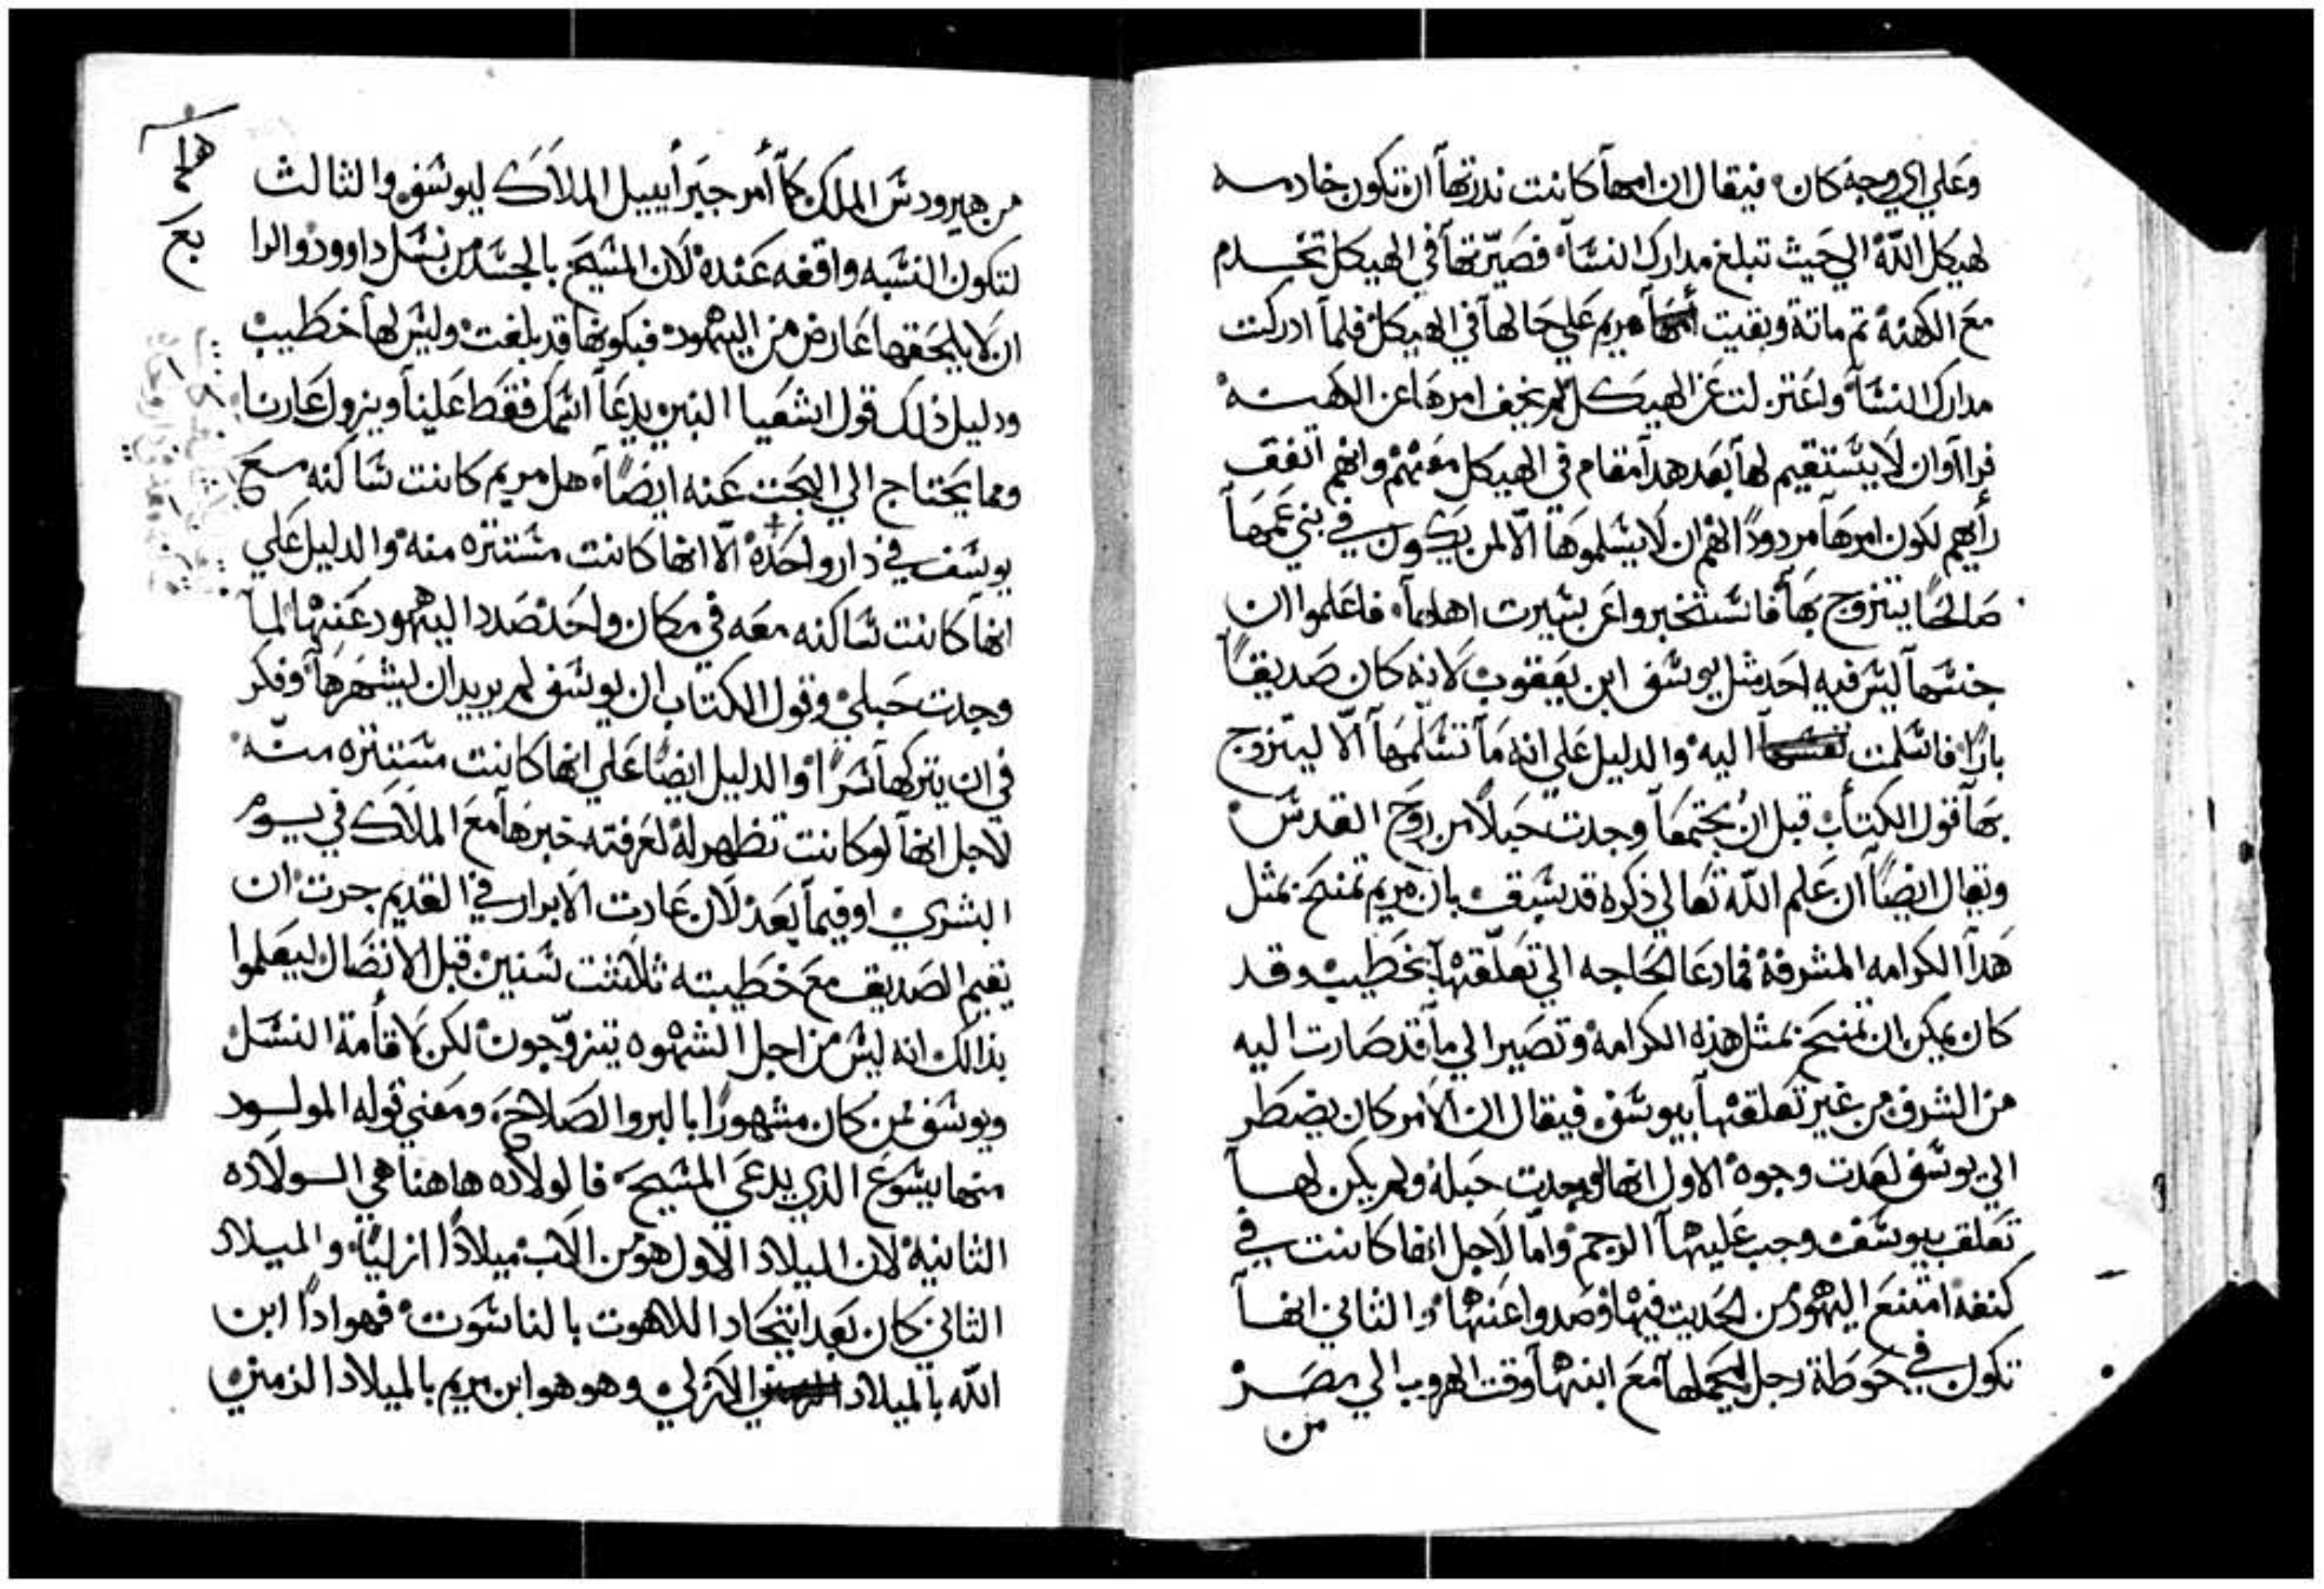 وعلي اي وجه كان فيقال ان امها كانت ندرتها ان تكون خادمه
لهيكل الله الي حيث تبلغ مدارك النسآ فصيرتها في الهيكل تخدم
مع الكهنة تم ماتة وبقيت مريم علي حالها في الهيكل فلما ادركت
مدارك النسآ واعتزلت عن الهيكل لم يخف امرها عن الكهنه
فراآوان لا يستقيم لها بعد هدا مقام في الهيكل معهم وانهم اتفق
رأيهم لكون امرها مردودًا الهم ان لا يسلموها الا لمن يكون في بني عمها
صالحًا يتزوج بها فاستخبروا عن بسيرت اهلها فاعلموا ان
جنسها ليس فيه احد مثل يوسف ابن يعقوب لانه كان صديقًا
بارًا فاسلمت اليه والدليل علي انه ما تسلمها الا ليتزوج
بها قول الكتاب قبل ان يجتمعا وجدت حبلا من روح القدس
ويقال ايضًا ان علم الله تعالي ذكره قد سبق بان مريم تمنح بمثل
هدا الكرامه المشرفة فما دعا الحاجه الي تعلقها بخطيب وقد
كان يمكن ان تمنح بمثل هذه الكرامة وتصير الي ما قد صارت اليه
من الشرف من غير تعلقها بيوسف فيقال ان الامر كان يضطر
الي يوسف لعدت وجوه الاول انها لو وجدت حبله ولم يكن لها
تعلق بيوسف وجب عليها الرجم واما لاجل انها كانت في
كنفه امتنع اليهود من الحديت فيها وصدوا عنها والثاني انها
تكون في حوطة رجل ليحملها مع ابنها وقت الهروب الي مصر
من
من هيرودس الملك كما أمر جبراييل الملاك ليوسف والثالث
لتكون النسبه واقفه عنده لان المسيح بالجسد من نسل داوود والرا
بع
ان لا يلحقها عارض من اليهود فبكونها قد بلغت وليس لها خطيب
ودليل ذلك قول اشعيا النبي يدعا اسمك فقط علينا ويزول عارنا
ومما يحتاج الي البحت عنه ايضًا هل مريم كانت ساكنه مع
يوسف في دار واحدة الا انها كانت مستتره منه والدليل علي
انها كانت ساكنه معه في مكان واحد صدد اليهود عنها لما
وجدت حبلي وقول الكتاب ان يوسف لم يريد ان ليشهرها وفكر
في ان يتركها سرًا والدليل ايضًا علي انها كانت مستتره منه
لاجل انها لو كانت تظهر له لعرفته خبرها مع الملاك في يوم
البشري او فيما بعد لان عادت الابرار في القديم جرت ان
يقيم الصديق مع خطيبته ثلاثت سنين قبل الاتصال ليعلموا
بذالك انه ليس من اجل الشهوه يتزوجون لكن لاقأمة النسل
ويوسف من كان مشهورًا بالبر والصلاح ومعني قوله المولود
منها يسوع الذي يدعي المسيح فالولاده هاهنا هي الولاده
الثانية لان الميلاد الاول هو من الاب ميلادًا ازليًا والميلاد
الثاني كان بعد اتحاد اللاهوت بالناسوت فهو ادًا ابن
الله بالميلاد الازلي وهو هو ابن مريم بالميلاد الزمني